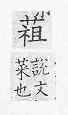 蒩
說文
菜也